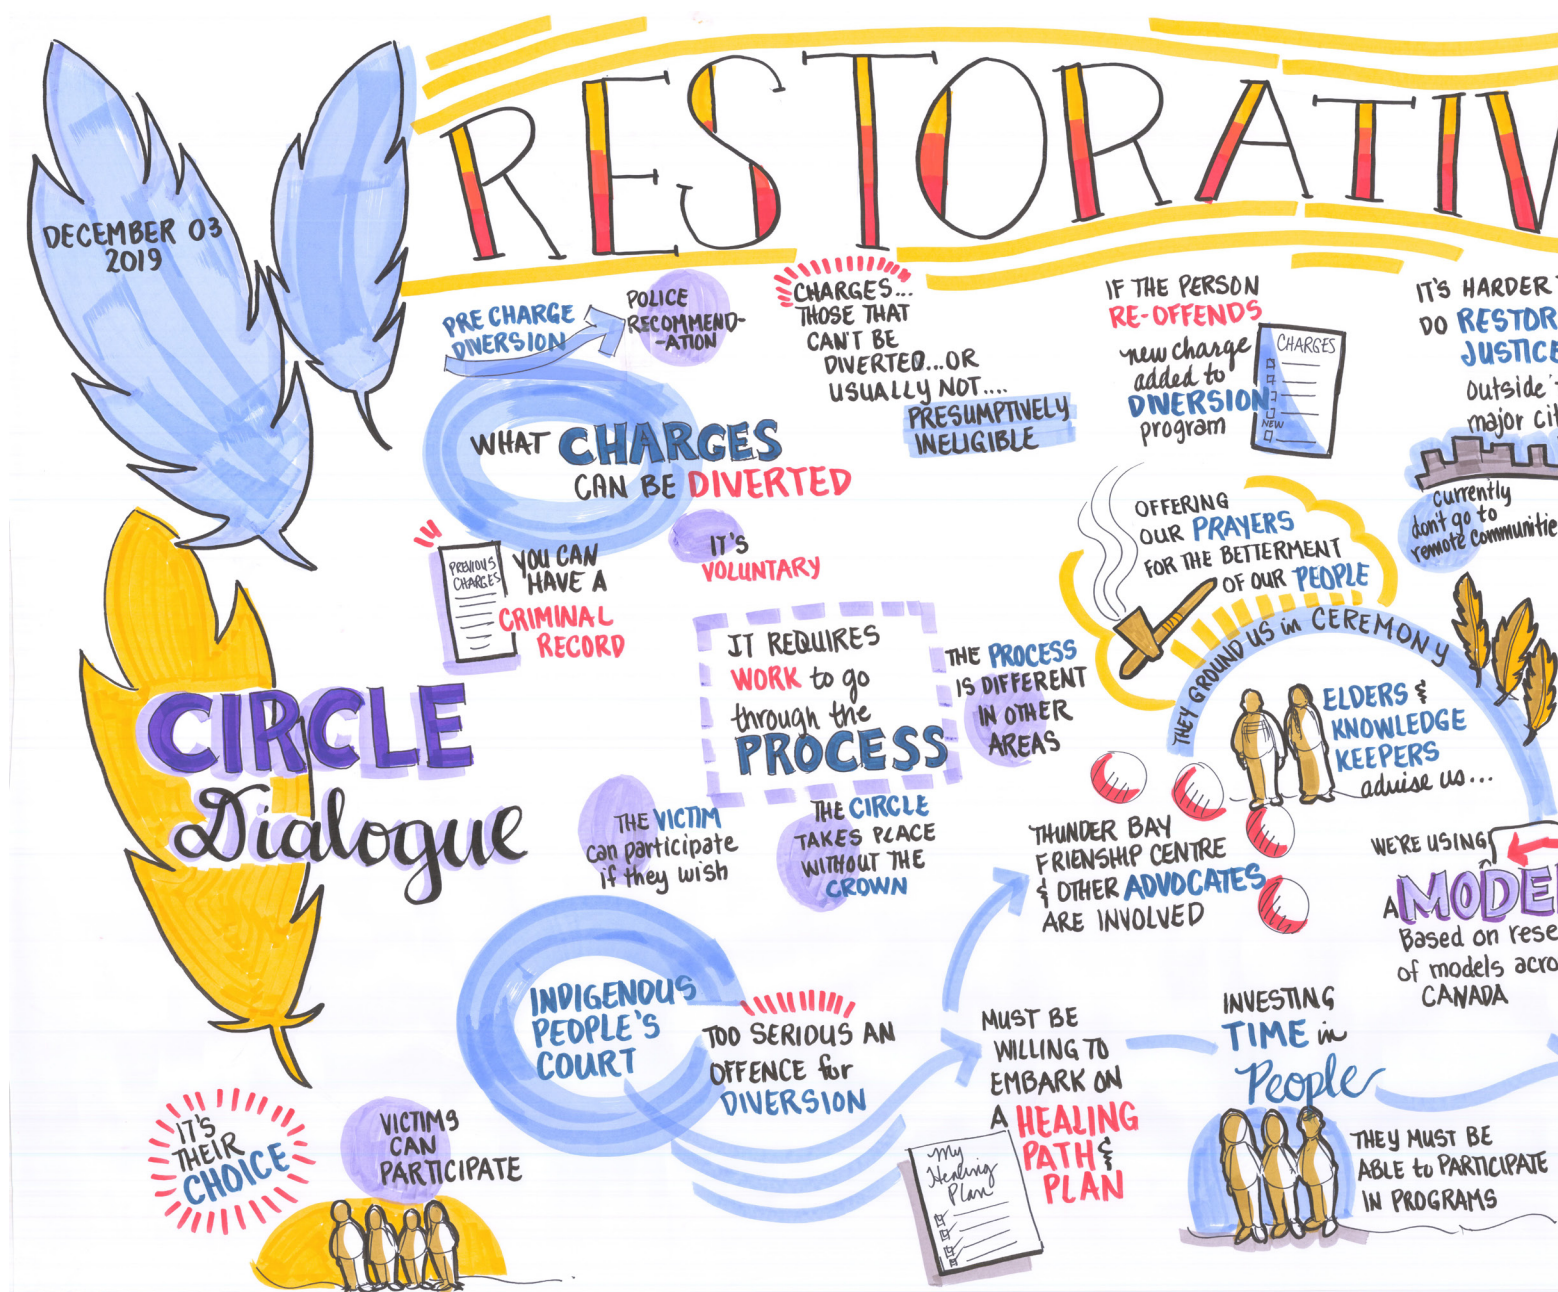 DECEMBER 03
2019
RESTORATIV
PRE CHARGE
DIVERSION
POLICE
RECOMMEND-
-ATION
WHAT CHARGES
CAN BE DIVERTED
CHARGES...
THOSE THAT
CAN'T BE
DIVERTED...OR
USUALLY NOT....
PRESUMPTIVELY
INELIGIBLE
IF THE PERSON
RE-OFFENDS
new charge
added to
DIVERSION
program
CHARGES
NEW
IT'S HARDER
DO RESTOR
JUSTICE
outside
major cit
currently
don't go to
remote communitie
PREVIOUS
CHARGES
YOU CAN
HAVE A
CRIMINAL
RECORD
IT'S
VOLUNTARY
OFFERING
OUR PRAYERS
FOR THE BETTERMENT
OF OUR PEOPLE
CIRCLE
Dialogue
IT REQUIRES
WORK to go
through the
PROCESS
THE PROCESS
IS DIFFERENT
IN OTHER
AREAS
THEY GROUND US in CEREMONY
ELDERS &
KNOWLEDGE
KEEPERS
advise us...
THE VICTIM
can participate
if they wish
THE CIRCLE
TAKES PLACE
WITHOUT THE
CROWN
THUNDER BAY
FRIENSHIP CENTRE
& OTHER ADVOCATES
ARE INVOLVED
WE'RE USING
A MODE
Based on rese
of models acro
CANADA
INDIGENOUS
PEOPLE'S
COURT
TOO SERIOUS AN
OFFENCE for
DIVERSION
MUST BE
WILLING TO
EMBARK ON
A HEALING
PATH &
PLAN
My
Healing
Plan
INVESTING
TIME in
People
THEY MUST BE
ABLE to PARTICIPATE
IN PROGRAMS
IT'S
THEIR
CHOICE
VICTIMS
CAN
PARTICIPATE